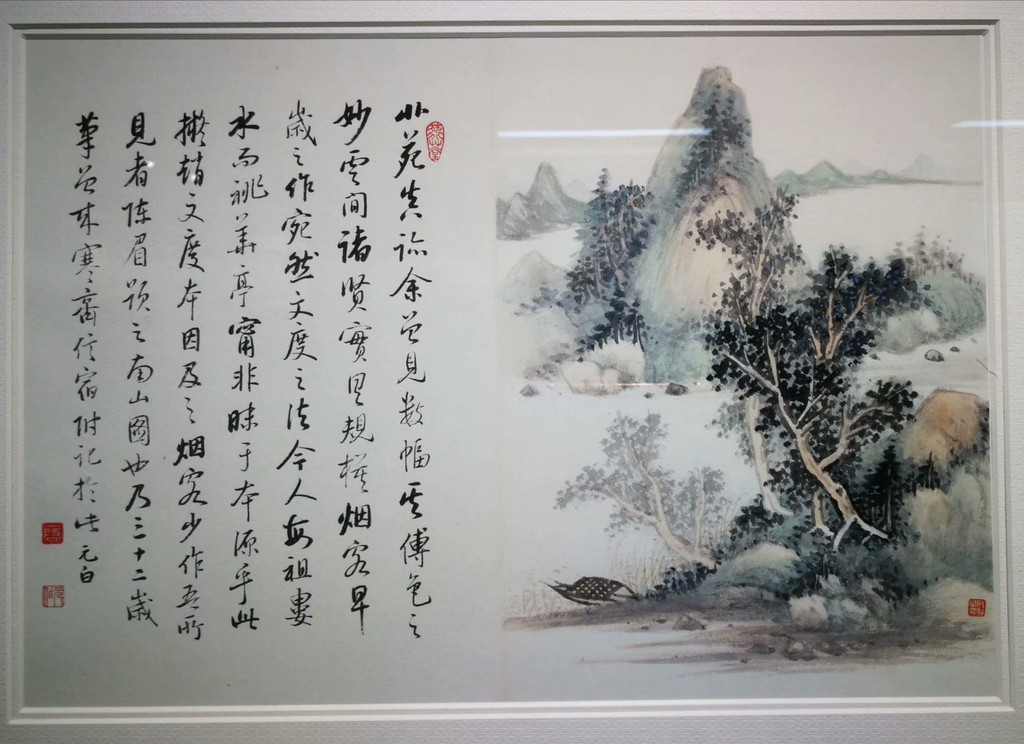 北苑真跡余曾見數幅其傅色之
妙雲間諸賢實具規模烟客早
歲之作宛然文度之法今人每祖婁
水而祧華亭甯非昧于本源乎此
擬趙文度本因及之烟客少作吾所
見者陳眉題之南山圖也乃三十二歲
筆曾來寒齋信宿附記於此元白